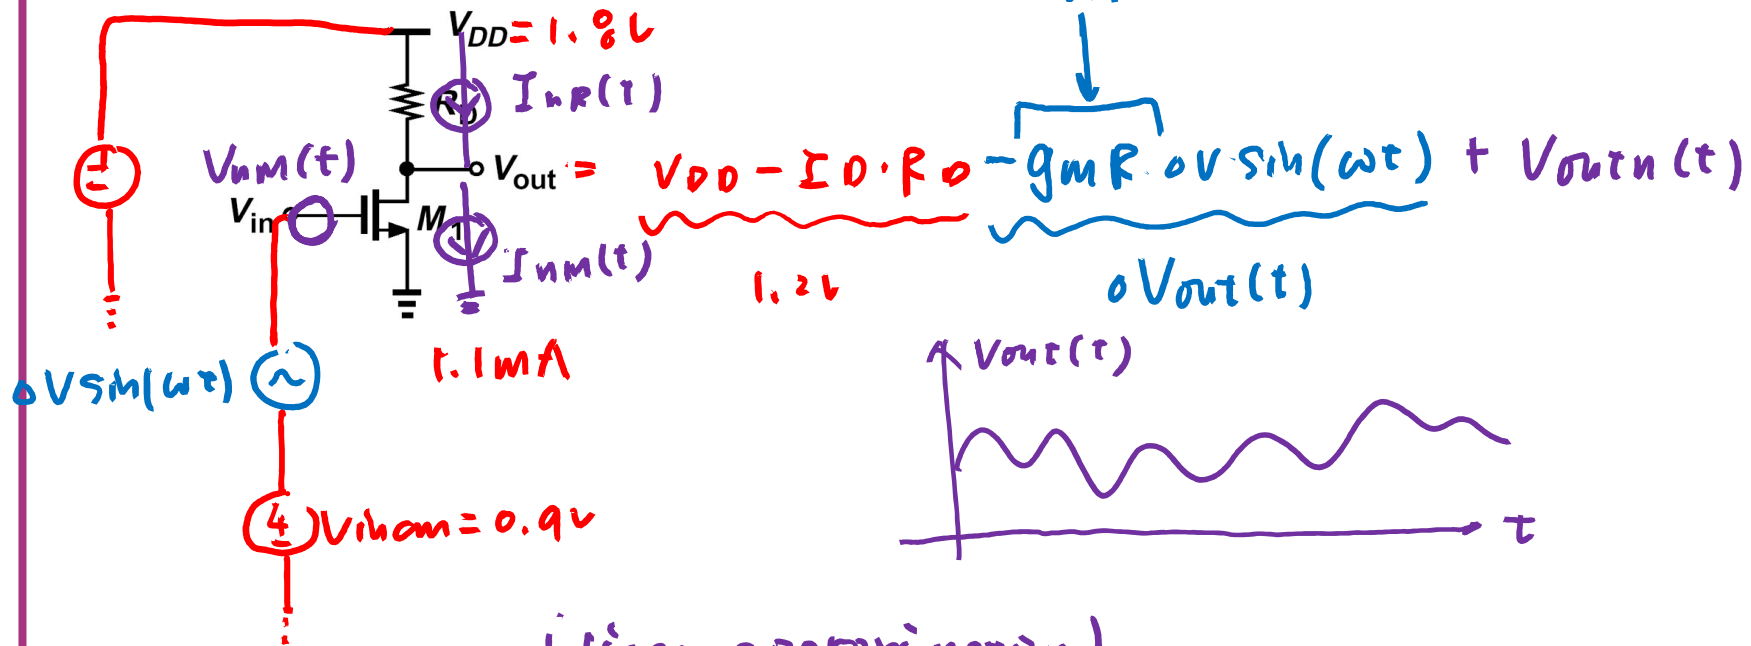 V_DD = 1.8V
R_D I_nR(t)
V_nM(t)
V_in M_1 V_out = V_DD - I_D · R_D - g_m R · ΔV sin(ωt) + V_outn(t)
I_nM(t)
1.2V ΔV_out(t)
1.1mA
ΔV sin(ωt)
V_out(t)
V_incm = 0.9V
t